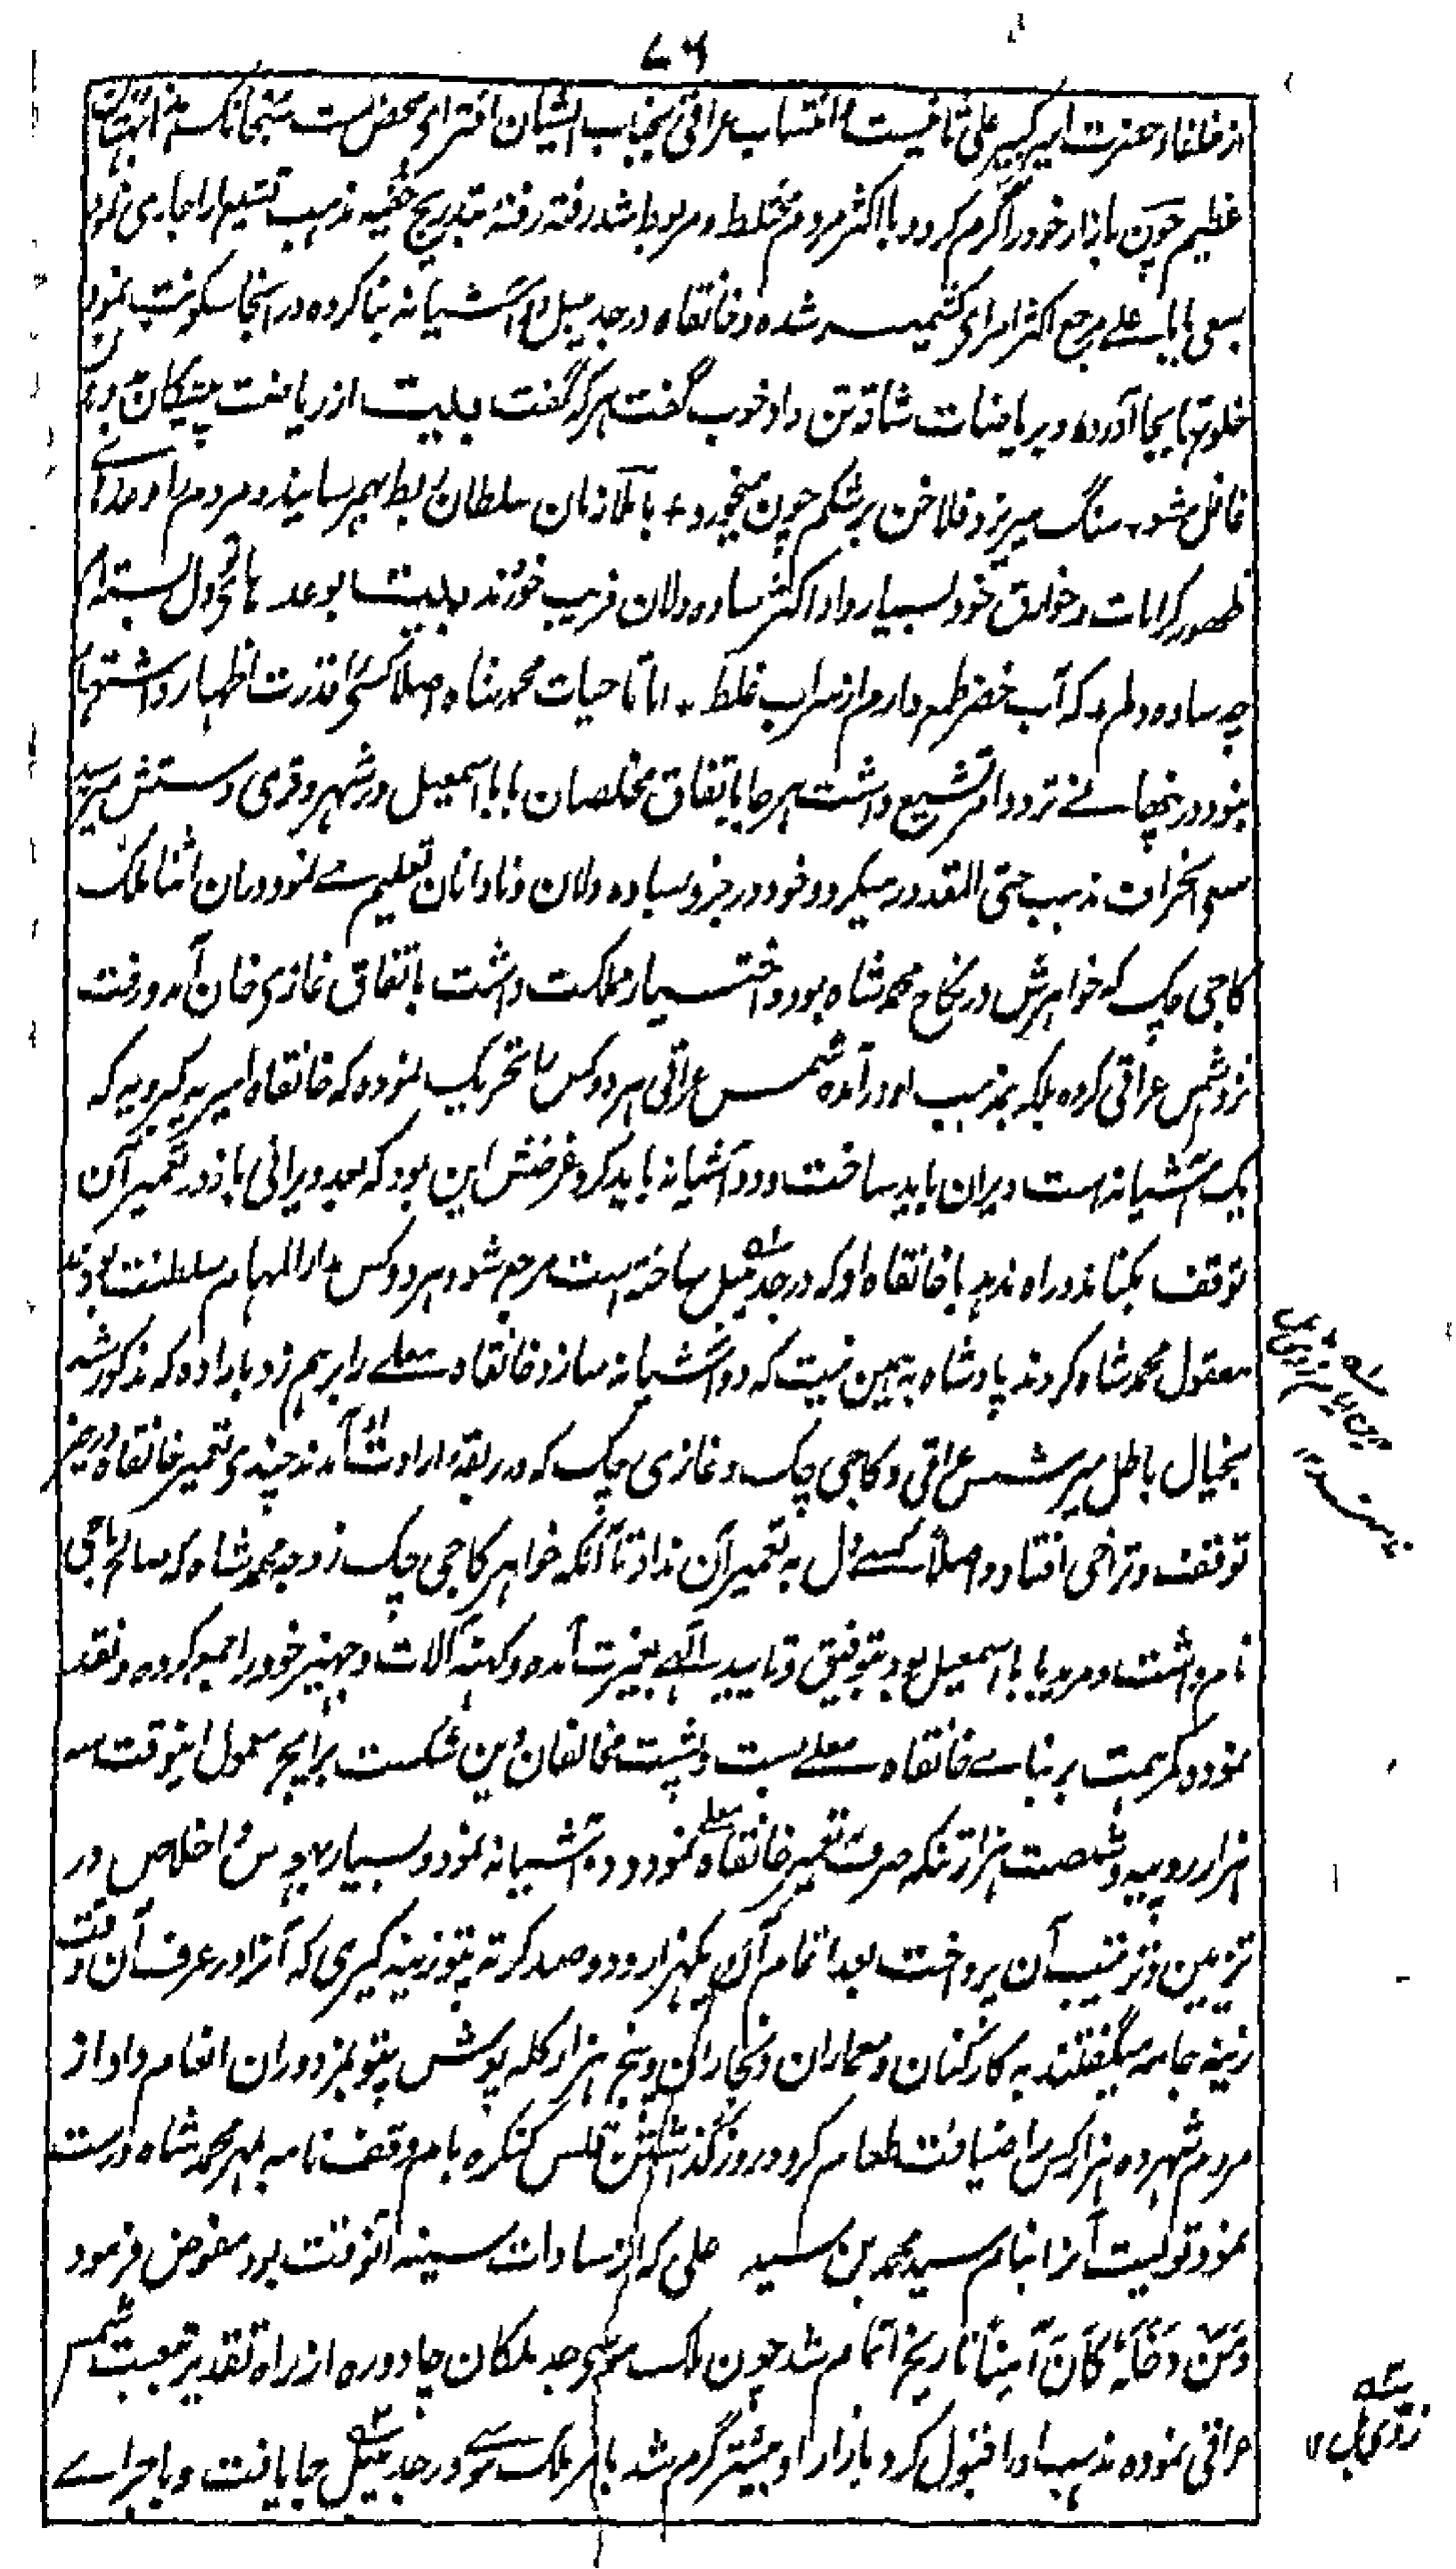 ۷۶
از خلفاء حضرت امیر کبیر علی ثانیست و انتساب عراقی بجناب ایشان افترای محض است سبحانک هذا بهتان
عظیم چون بازار خود را گرم کرد و با اکثر مردم مختلط و مربوط شد رفته رفته بتدریج خفیه مذهب تشیع را جاری نمود
بسعی بابا علی مرجع اکثر امرای کشمیر شده و خانقاه در جدیبل دو آشیانه بنا کرده در آنجا سکونت نمود
خلوتها بجا آورده و بریاضات شاقه تن داد خوب گفت هر که گفت بیت از ریاضت پیشگان
غافل مشو سنگ میریزد فلاخن بر شکم چون میخورد + با ملازمان سلطان ربط بهم رسانید و مردم را وعدهای
ظهور کرامات و خوارق خود بسیار داد اکثر ساده دلان فریب خوردند بیت بوعدهای تو دل بسته ام
چه ساده دلم + که آب خضر طمع دارم از سراب غلط + اما تا حیات محمد شاه اصلا کسی را قدرت اظهار و اشتهار
نبود در پنهانی تردد امر تشیع داشت هر جا باتفاق مخلصان بابا اسمعیل در شهر و قری دستش میرسید
سعی انحراف مذهب حتی المقدور میکرد و خود در جزو بساده دلان و نادانان تعلیم می نمود دران اثنا ملک
کاجی چک که خواهرش در نکاح محمد شاه بود و اختیار مملکت داشت باتفاق غازی خان آمد و رفت
نزد شمس عراقی کرده بلکه بمذهب او در آمده شمس عراقی هر دو کس را تحریک نموده که خانقاه امیریه کبرویه که
یک آشیانه است ویران باید ساخت و دو آشیانه باید کرد غرضش این بود که بعد ویرانی باز در تعمیر آن
توقف بکنانند و راه ندهد با خانقاه او که در جدیبل ساخته است مرجع شود هر دو کس مدار المهام سلطنت بودند
معقول محمد شاه کردند پادشاه به همین نیت که دو آشیانه سازد خانقاه معلی را برهم زد باراده که مذکور شد
بخیال باطل میر شمس عراقی و کاجی چک و غازی چک که در ربقه ارادت او آمدند چندی تعمیر خانقاه در حیز
توقف و تراخی افتاد و اصلا کسی دل به تعمیر آن نداد تا آنکه خواهر کاجی چک زوجه محمد شاه که صالحه باجی
نام داشت و مرید بابا اسمعیل بود بتوفیق و تایید الهی بغیرت آمده و کهنه آلات و جهیز خود را جمع کرده و نقد
نموده کمر همت بر بنای خانقاه معلی بست و پشت مخالفان دین شکست برایج معمول اینوقت سه
هزار روپیه و شصت هزار تنکه صرف تعمیر خانقاه معلی نمود و دو آشیانه نمود و بسیار بوجه حسن اخلاص در
تزیین و ترتیب آن پرداخت بعد اتمام آن یکهزار و دو صد کرته پتو زینه گیری که آنرا در عرف آن وقت
زینه جامه میگفتند به کارکنان و معماران و نجاران و پنج هزار کله پوش پتو بمزدوران انعام داد از
مردم شهر ده هزار کس را ضیافت طعام کرد و روز گذاشتن قلس کنکره بام وقف نامه بمهر محمد شاه درست
نمود تولیت آنرا بنام سید محمد بن سید علی که از سادات سنیه آنوقت بود مفوض فرمود
وَمَن دَخَلَهُ كَانَ آمِناً تاریخ اتمام شد چون ملک موسی جد ملکان چادوره از راه تقدیر تبعیت شمس
عراقی نموده مذهب او را قبول کرد بازار او بیشتر گرم شد با مر ملک موسی در جدیبل جا یافت و باجرای